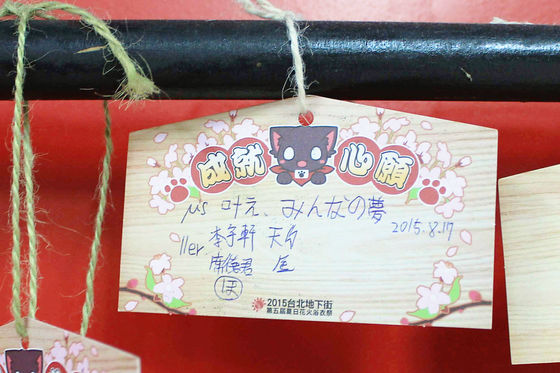 成就心願
μ's 叶え、みんなの夢
2015.8.17
ller 李子軒 天白
君
ほ
2015台北地下街
第五屆夏日花火浴衣祭